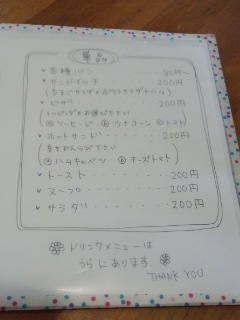 単品
♥ 各種パン ・・・・・ 80円〜
♥ サンドイッチ ・・・・・ 200円
(たまごサンド or ポテトサンド or ハム)
♥ ピザ ・・・・・・・ 200円
トッピングをお選び下さい
ⓐ ソーセージ ⓑ ツナコーン ⓒ トマト
♥ ホットサンド ・・・・ 200円
具をおえらび下さい
ⓐ ハムキャベツ ⓑ チーズトマト
♥ トースト ・・・・・ 200円
♥ スープ ・・・・・・ 200円
♥ サラダ ・・・・・・ 200円
ドリンクメニューは
うらにあります。
THANK YOU